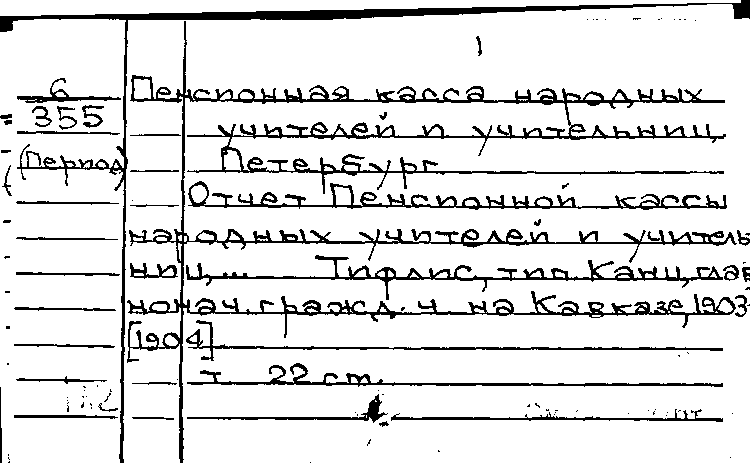 1
6
355
(Период)
Пенсионная касса народных
учителей и учительниц,
Петербург
Отчет Пенсионной кассы
народных учителей и учитель
ниц,... Тифлис, тип. Канц. глав
нонач. гражд. ч. на Кавказе, 1903-
[1904]
т 22 cm.